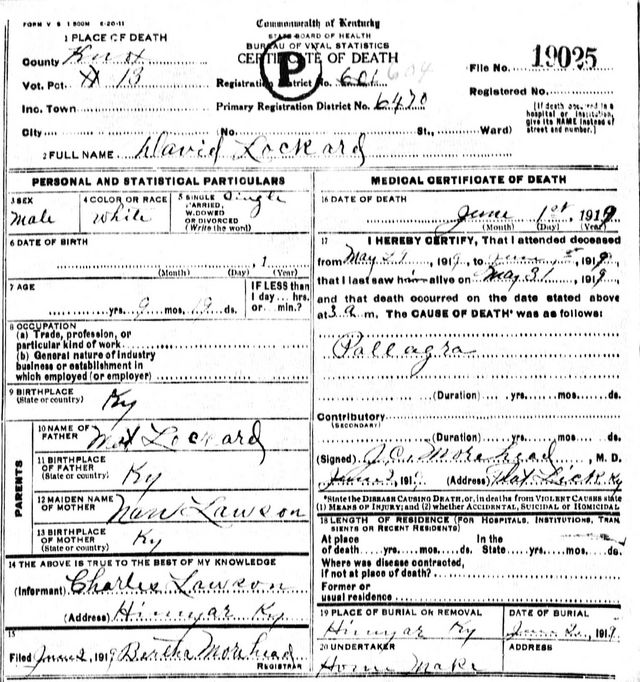 FORM V S 1 500M 6-20-11
Commonwealth of Kentucky
STATE BOARD OF HEALTH
BUREAU OF VITAL STATISTICS
CERTIFICATE OF DEATH
P
1 PLACE OF DEATH
County Knox
Vot. Pct. # 13
Inc. Town
City (No. St., Ward)
Registration District No. 601 604
Primary Registration District No. 6470
File No. 19025
Registered No.
[If death occurred in a hospital or institution, give its NAME instead of street and number.]
2 FULL NAME David Lockard
PERSONAL AND STATISTICAL PARTICULARS
3 SEX Male
4 COLOR OR RACE White
5 SINGLE, MARRIED, WIDOWED OR DIVORCED (Write the word) Single
6 DATE OF BIRTH
, 1
(Month) (Day) (Year)
7 AGE
yrs. 9 mos. 19 ds.
IF LESS than 1 day... hrs. or min.?
8 OCCUPATION
(a) Trade, profession, or
particular kind of work
(b) General nature of industry
business or establishment in
which employed (or employer)
9 BIRTHPLACE
(State or country) Ky
PARENTS
10 NAME OF FATHER Mat Lockard
11 BIRTHPLACE OF FATHER (State or country) Ky
12 MAIDEN NAME OF MOTHER Nan Lawson
13 BIRTHPLACE OF MOTHER (State or country) Ky
14 THE ABOVE IS TRUE TO THE BEST OF MY KNOWLEDGE
(Informant) Charles Lawson
(Address) Hinnyar Ky
15
Filed June 2 1919 Bertha Morehead
REGISTRAR
MEDICAL CERTIFICATE OF DEATH
16 DATE OF DEATH
June 1st, 1919
(Month) (Day) (Year)
17 I HEREBY CERTIFY, That I attended deceased
from May 21 1919, to June 1st, 1919,
that I last saw him alive on May 31 1919
and that death occurred on the date stated above
at 3 a m. The CAUSE OF DEATH* was as follows:
Pallagra
(Duration) yrs. mos. ds.
Contributory
(SECONDARY)
(Duration) yrs. mos. ds.
(Signed) J.C. Morehead, M. D.
June 2, 191 (Address) Flat Lick Ky
*State the DISEASE CAUSING DEATH, or, in deaths from VIOLENT CAUSES state
(1) MEANS OF INJURY; and (2) whether ACCIDENTAL, SUICIDAL OR HOMICIDAL
18 LENGTH OF RESIDENCE (FOR HOSPITALS, INSTITUTIONS, TRANSIENTS OR RECENT RESIDENTS)
At place In the
of death yrs. mos. ds. State yrs. mos. ds.
Where was disease contracted,
if not at place of death?
Former or
usual residence
19 PLACE OF BURIAL OR REMOVAL
Hinnyar Ky
DATE OF BURIAL
June 2, 1919
20 UNDERTAKER
Home Make
ADDRESS